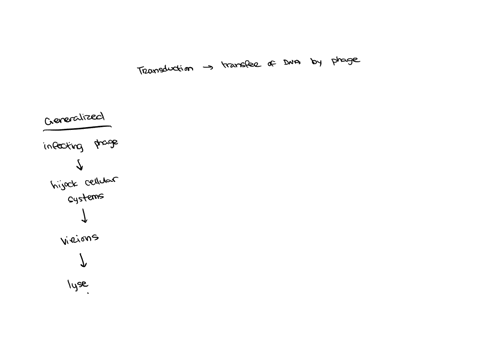 Transduction → transfer of DNA by phage
Generalized
infecting phage
↓
hijack cellular
systems
↓
Virions
↓
lyse